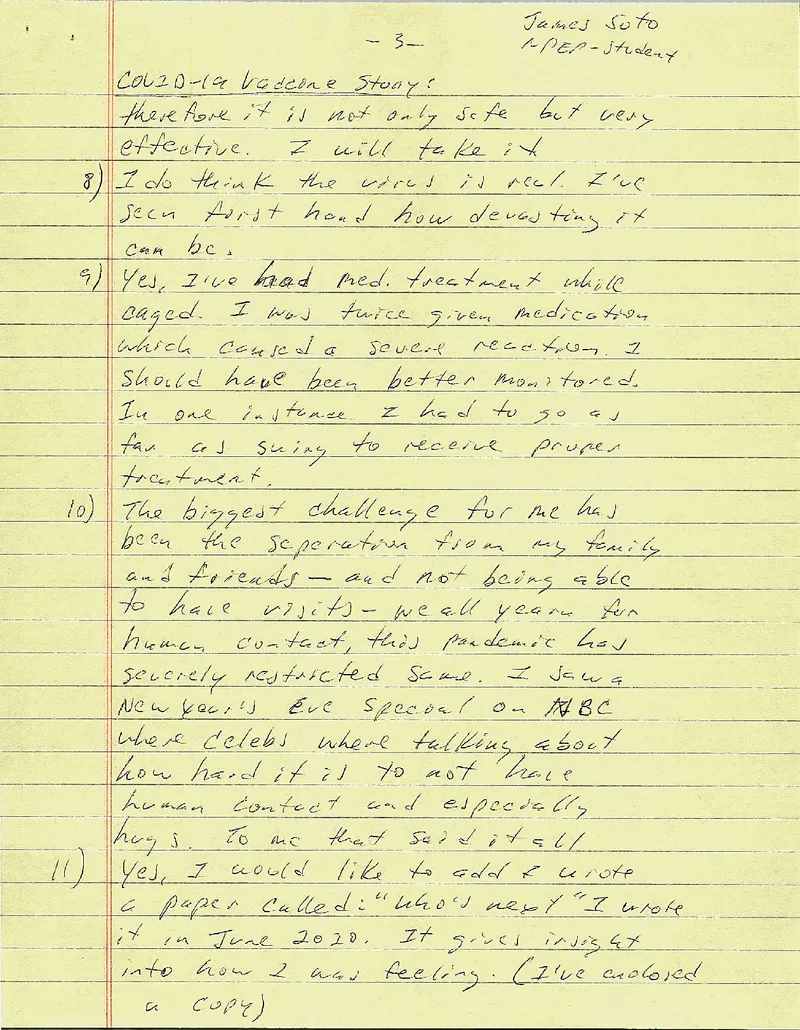 James Soto
- 3 -
NPEP-Student
COVID-19 Vaccine Story:
therefore it is not only safe but very
effective. I will take it
8) I do think the virus is real. I've
seen first hand how devasting it
can be.
9) Yes, I've had med. treatment while
caged. I was twice given medication
which caused a severe reaction. I
should have been better monitored.
In one instance I had to go as
far as suing to receive proper
treatment.
10) The biggest challenge for me has
been the seperation from my family
and friends — and not being able
to have visits — we all yearn for
human contact, this pandemic has
severely restricted same. I saw a
New Year's Eve Special on NBC
where celebs where talking about
how hard it is to not have
human contact and especially
hugs. To me that said it all
11) Yes, I would like to add I wrote
a paper called: "Who's next" I wrote
it in June 2020. It gives insight
into how I was feeling. (I've enclosed
a copy)